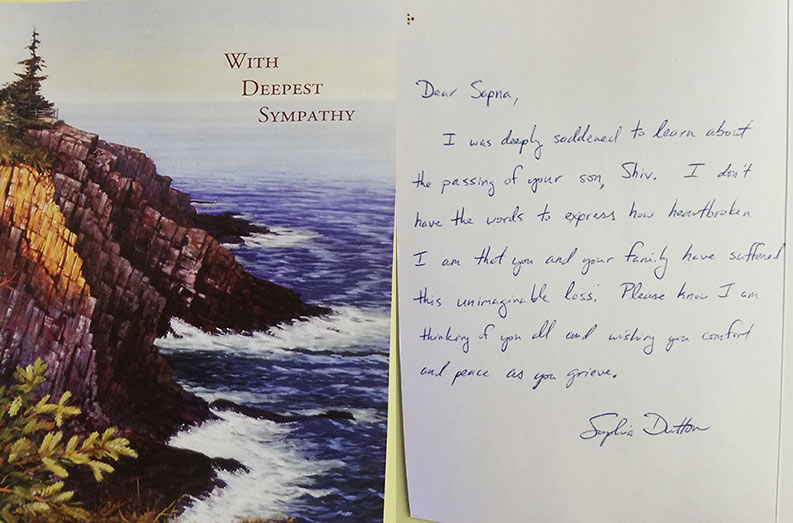 WITH
DEEPEST
SYMPATHY
Dear Sapna,
I was deeply saddened to learn about
the passing of your son, Shiv. I don't
have the words to express how heartbroken
I am that you and your family have suffered
this unimaginable loss. Please know I am
thinking of you all and wishing you comfort
and peace as you grieve.
Sophia Dutton